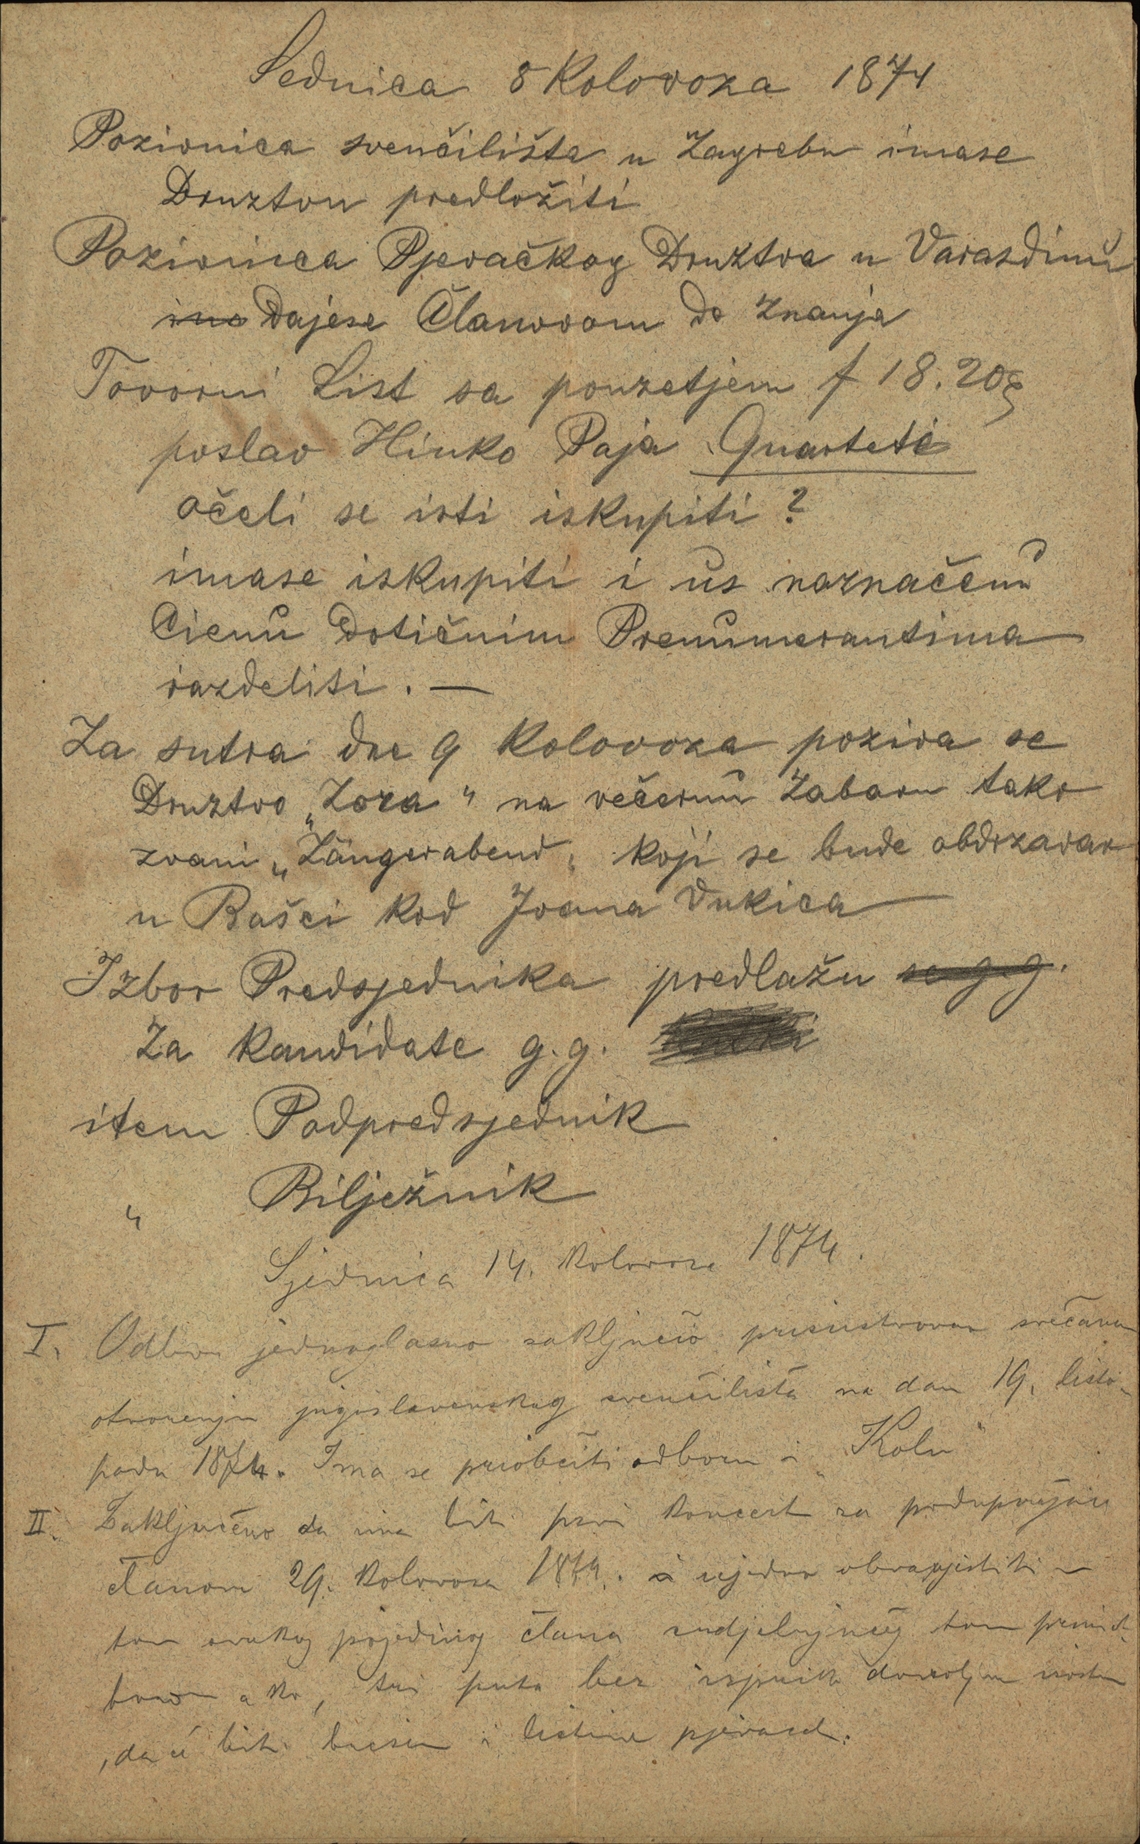 Sednica 8 Kolovoza 1874
Pozivnica sveučilišta u Zagrebu imase
Družtvu predložiti
Pozivnica Pjevačkog Družtva u Varaždinu
Dajese Članovom do znanja
Tovorni List sa pouzetjem f 18.20
poslao Hinko Paja Quarteti
očeli se isti iskupiti ?
imase iskupiti i us naznačenu
Cienu dotičnim Prenumerantima
razdeliti . —
Za sutra dne 9 Kolovoza poziva se
Druztvo „Zora" na večernu Zabavu tako
zvani „Zängerabend" koji se bude obdrzavao
u Rašci kod Joana Vukica
Izbor Predsjednika predlažu se g.g.
Za kandidate g.g.
item Podpredsjednik
" Bilježnik
Sjednica 14. kolovoza 1874.
I. Odbor jednoglasno zaključio prisustvovati svečanom
otvorenju jugoslavenskog sveučilišta na dan 19. listo-
pada 1874. Ima se priobćiti odboru i „Kolu"
II. Zaključeno da ima biti prvi koncert za podupirajuće
članove 29. kolovoza 1874. i ujedno obavjestiti o
tom svakog pojedinog člana
ako, tri puta bez
da će biti brisan iz listine pjevač.